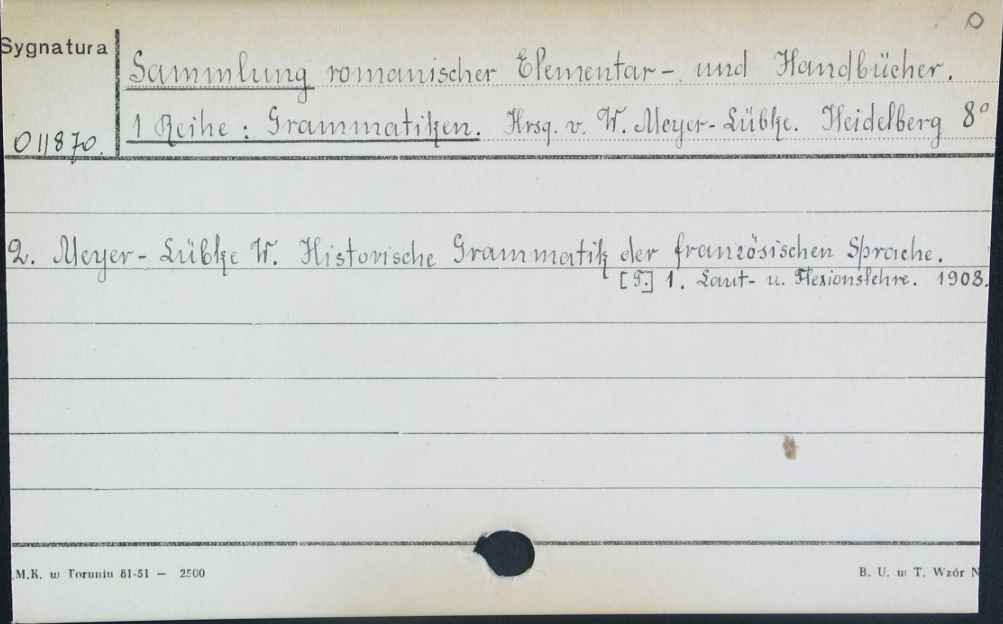 O
Sygnatura
Sammlung romanischer Elementar- und Handbücher.
011870.
1 Reihe : Grammatiken. Hrsg. v. W. Meyer-Lübke. Heidelberg 8°
2. Meyer-Lübke W. Historische Grammatik der französischen Sprache.
[T.] 1. Laut- u. Flexionslehre. 1908.
M.K. w Toruniu 51-51 — 2500
B. U. w T. Wzór N